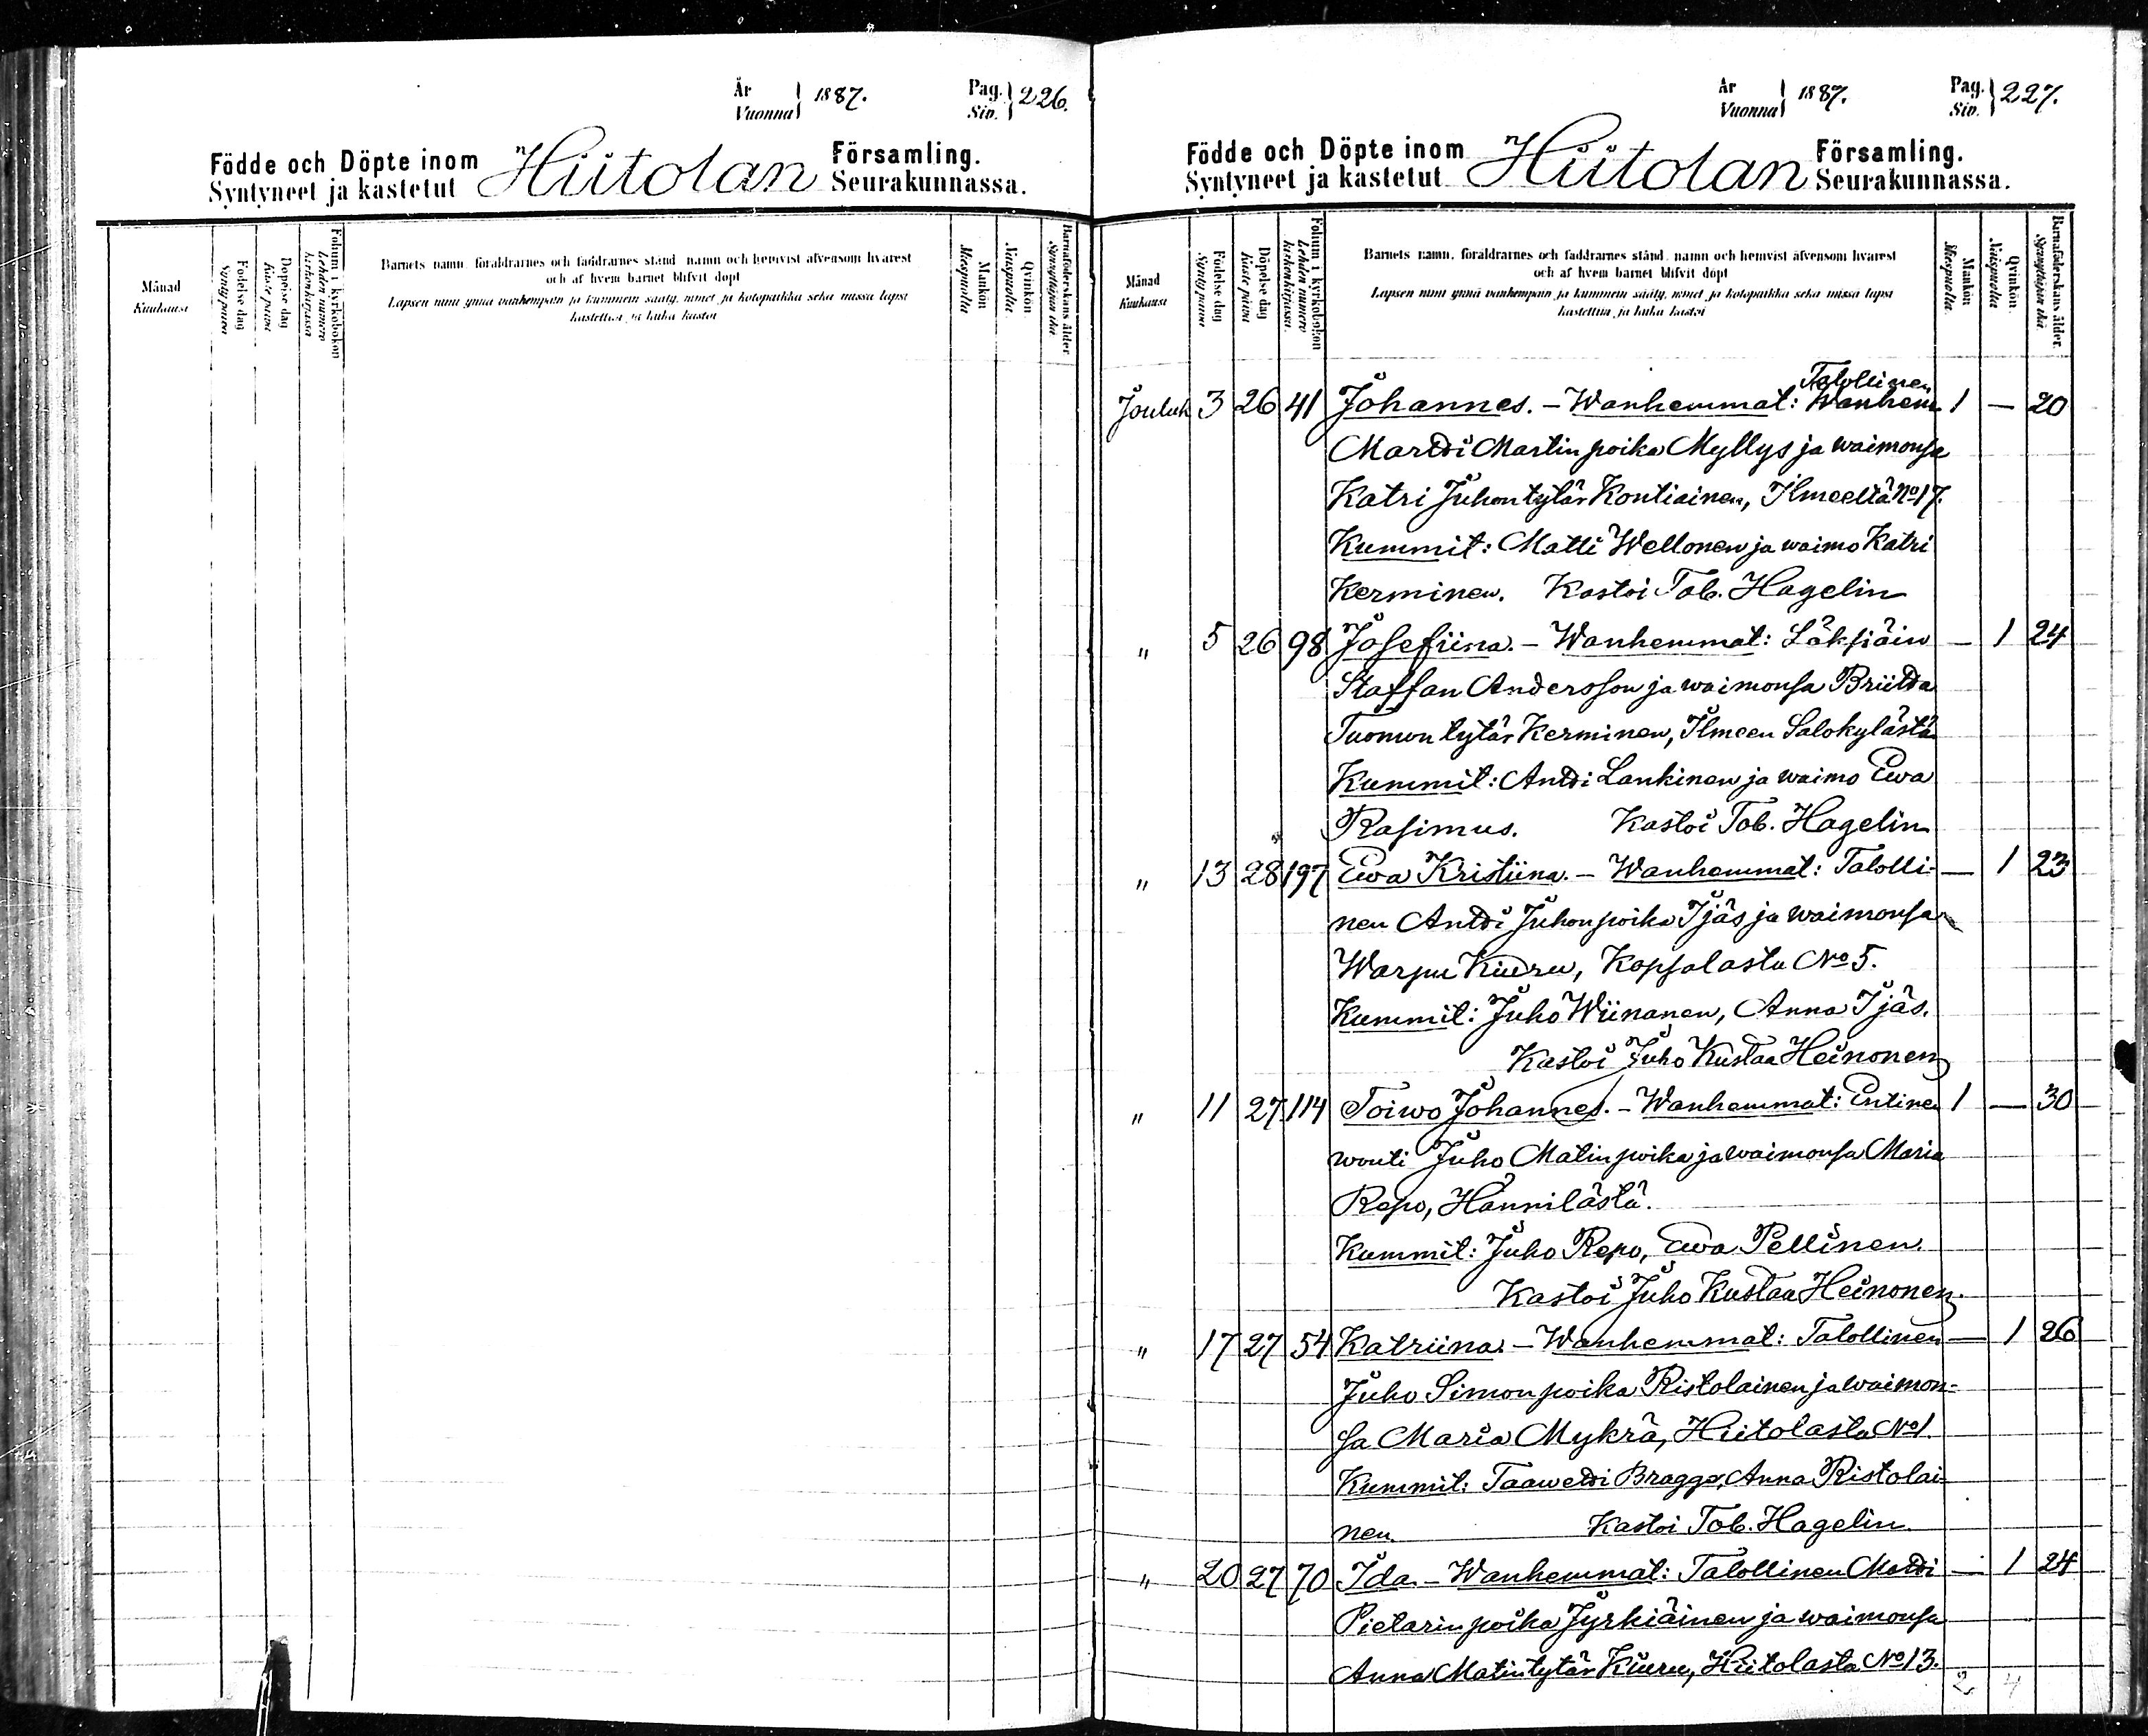 År Vuonna 1887. Pag. Siv. 226.
Födde och Döpte inom Hiitolan Församling.
Syntyneet ja kastetut Seurakunnassa.
Månad Kuukausi
Födelse dag Synty päivä
Döpelse dag Kaste päivä
Folium i kyrkoboken Lehden numero kirkonkirjassa
Barnets namn, föräldrarnes och faddrarnes stånd, namn och hemvist äfvensom hvarest
och af hvem barnet blifvit döpt
Lapsen nimi ynnä vanhempain ja kummein sääty, nimet ja kotopaikka sekä missä lapsi
kastettiin ja kuka kastoi
Mankön Miespuolta
Qvinkön Naispuolta
Barnaföderskans ålder Synnyttäjän ikä
År Vuonna 1887. Pag. Siv. 227.
Födde och Döpte inom Hiitolan Församling.
Syntyneet ja kastetut Seurakunnassa.
Månad Kuukausi
Födelse dag Synty päivä
Döpelse dag Kaste päivä
Folium i kyrkoboken Lehden numero kirkonkirjassa
Barnets namn, föräldrarnes och faddrarnes stånd, namn och hemvist äfvensom hvarest
och af hvem barnet blifvit döpt
Lapsen nimi ynnä vanhempain ja kummein sääty, nimet ja kotopaikka sekä missä lapsi
kastettiin ja kuka kastoi
Mankön Miespuolta
Qvinkön. Naispuolta
Barnaföderskans ålder. Synnyttäjän ikä
Talollinen
Jouluk 3 26 41 Johannes. - Wanhemmat: Wanhem 1 — 20
Martti Martin poika Myllys ja waimonsa
Katri Juhon tytär Kontiainen, Ilmeeltä No 17.
Kummit: Matti Wellonen ja waimo Katri
Kerminen. Kastoi Tob. Hagelin
" 5 26 98 Josefiina. - Wanhemmat: Läksiäin — 1 24
Staffan Andersson ja waimonsa Briitta
Tuomon tytär Kerminen, Ilmeen Salokylästä
Kummit: Antti Lankinen ja waimo Ewa
Rasimus. Kastoi Tob. Hagelin
" 13 28 197 Ewa Kristiina. - Wanhemmat: Talolli- — 1 23
nen Antti Juhonpoika Ijäs ja waimonsa
Warpu Kiuru, Kopsalasta No 5.
Kummit: Juho Wiinanen, Anna Ijäs.
Kastoi Juho Kustaa Heinonen
" 11 27 114 Toiwo Johannes. - Wanhemmat: Entinen 1 — 30
wouti Juho Matinpoika ja waimonsa Maria
Repo, Hännilästä.
Kummit: Juho Repo, Ewa Pellinen.
Kastoi Juho Kustaa Heinonen.
" 17 27 54 Katriina. - Wanhemmat: Talollinen — 1 26
Juho Simonpoika Ristolainen ja waimon-
sa Maria Mykrä, Hiitolasta No 1.
Kummit: Taawetti Bragge, Anna Ristolai
nen. Kastoi Tob. Hagelin.
" 20 27 70 Ida. - Wanhemmat: Talollinen Matti — 1 24
Pietarinpoika Jyrkiäinen ja waimonsa
Anna Matintytär Kiuru, Hiitolasta No 13.
2 4